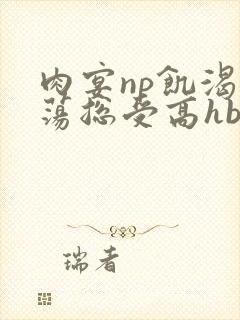 肉宴np飢渴
蕩總受高hb
瑞者